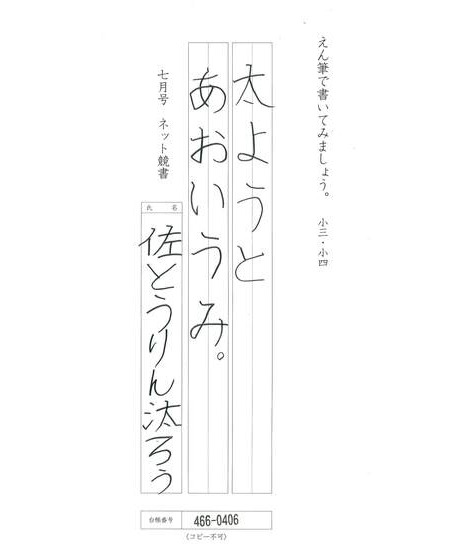 えん筆で書いてみましょう。　小三・小四
太ようと
あおいうみ。
七月号　ネット競書
氏名
佐とうりん汰ろう
台帳番号　466-0406
(コピー不可)